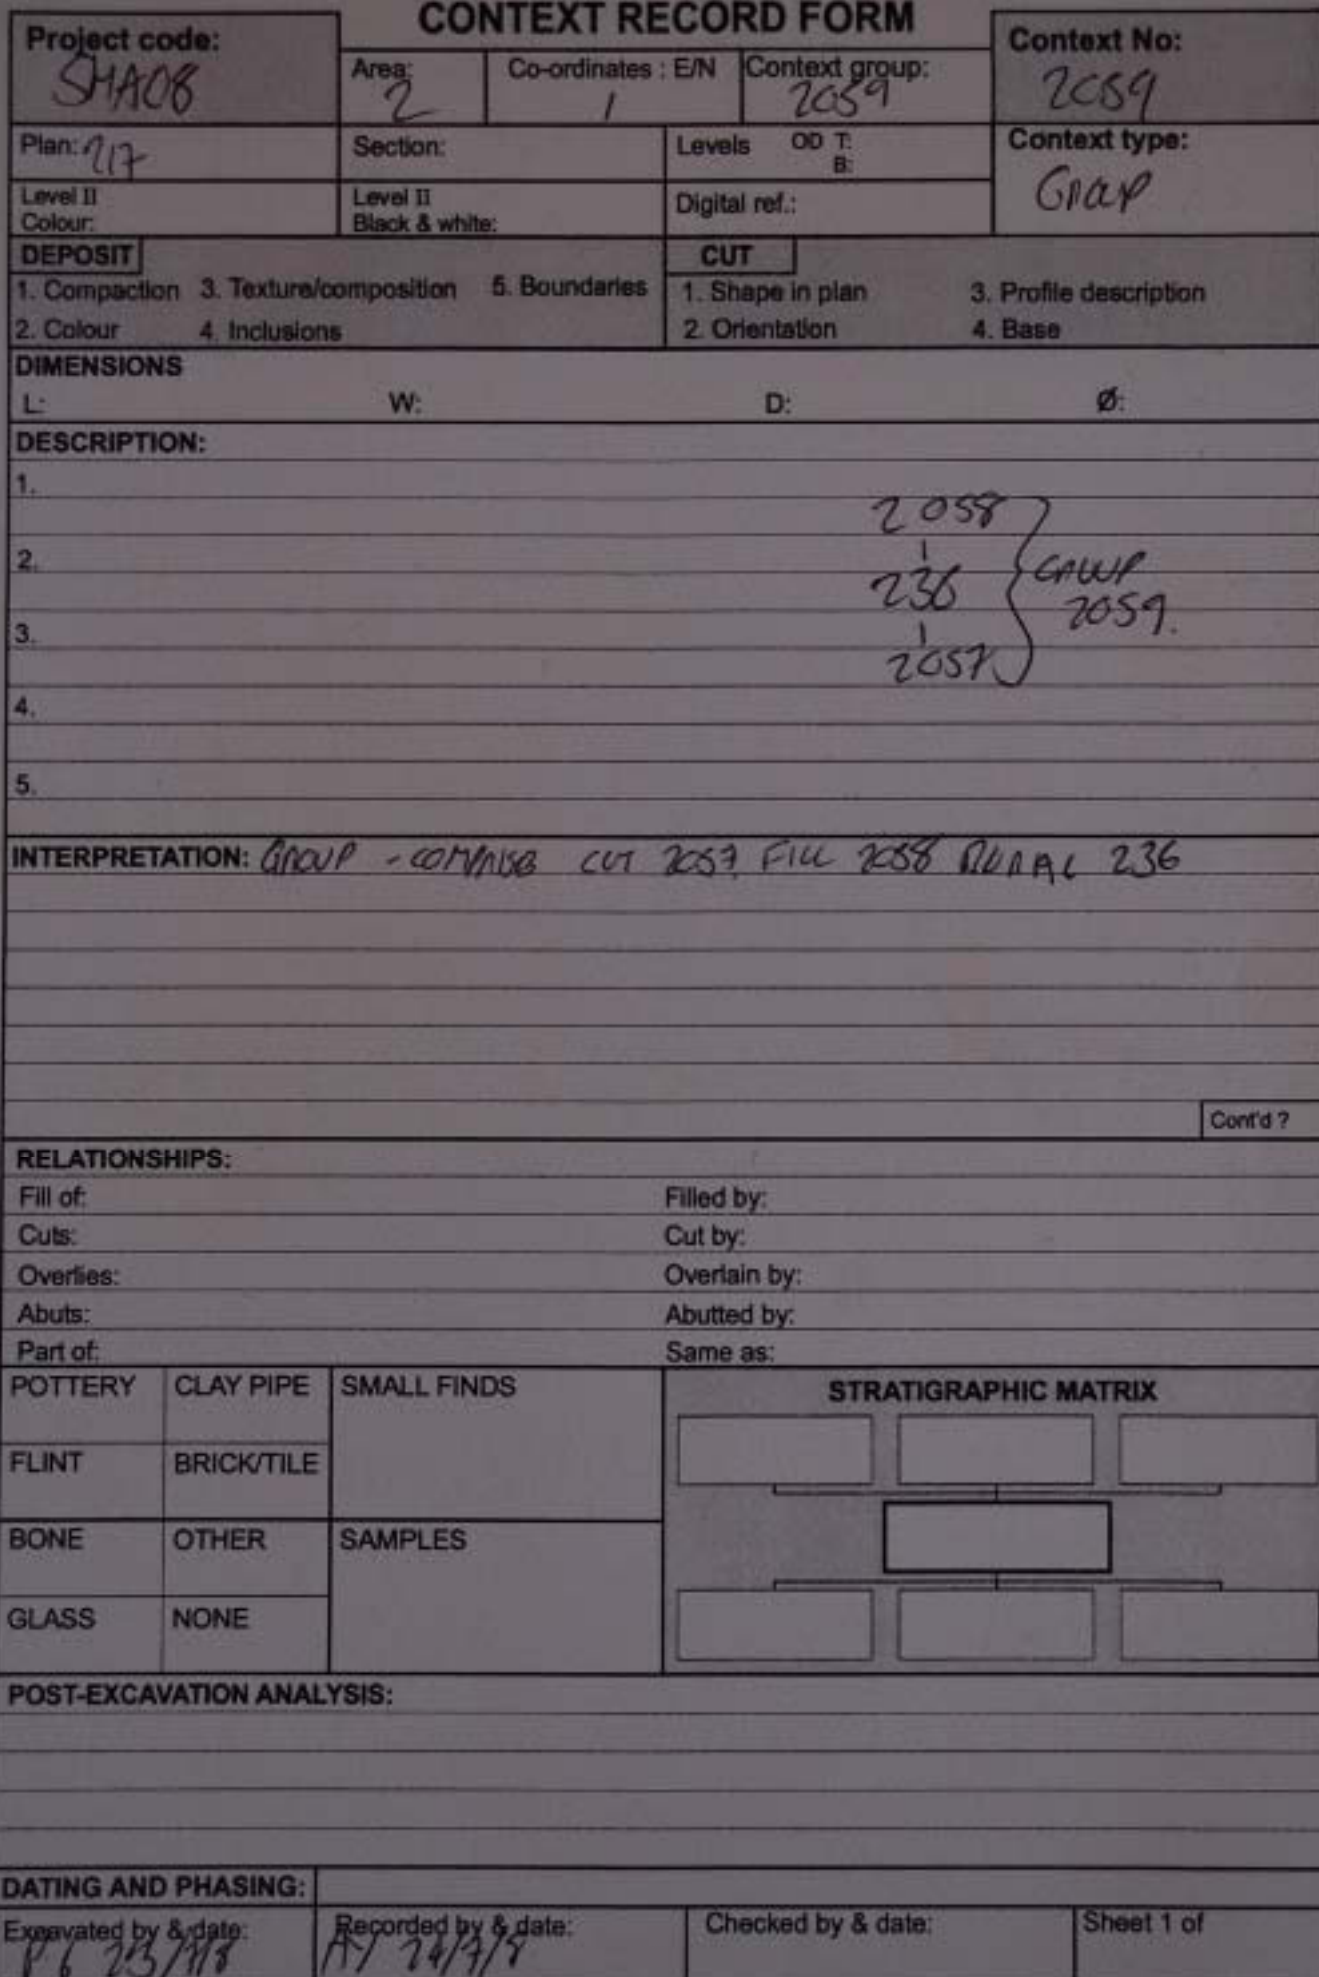 CONTEXT RECORD FORM
Project code:
SHA08
Area:
2
Co-ordinates : E/N
/
Context group:
2059
Context No:
2059
Plan: 217
Section:
Levels OD T:
B:
Context type:
Group
Level II
Colour:
Level II
Black & white:
Digital ref.:
DEPOSIT
1. Compaction 3. Texture/composition 5. Boundaries
2. Colour 4. Inclusions
CUT
1. Shape in plan 3. Profile description
2. Orientation 4. Base
DIMENSIONS
L: W: D: Ø:
DESCRIPTION:
1.
2.
3.
4.
5.
2058
236
2057
GROUP
2059.
INTERPRETATION: GROUP - COMPRISES CUT 2057, FILL 2058 BURIAL 236
Cont'd ?
RELATIONSHIPS:
Fill of: Filled by:
Cuts: Cut by:
Overlies: Overlain by:
Abuts: Abutted by:
Part of: Same as:
POTTERY CLAY PIPE SMALL FINDS
FLINT BRICK/TILE
BONE OTHER SAMPLES
GLASS NONE
STRATIGRAPHIC MATRIX
POST-EXCAVATION ANALYSIS:
DATING AND PHASING:
Excavated by & date:
23/7/8
Recorded by & date:
AY 24/7/8
Checked by & date:
Sheet 1 of